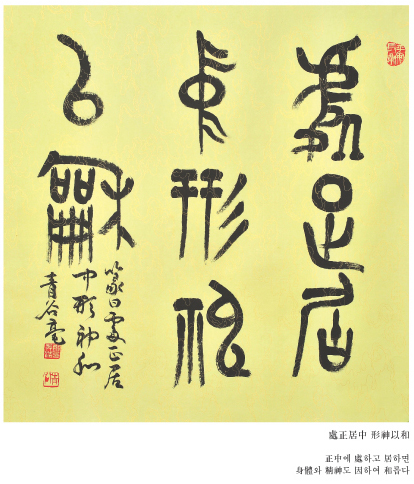 處正居
中形神
以龢
篆曰處正居
中形神和
青谷
處正居中 形神以和
正中에 處하고 居하면
身體와 精神도 因하여 和롭다